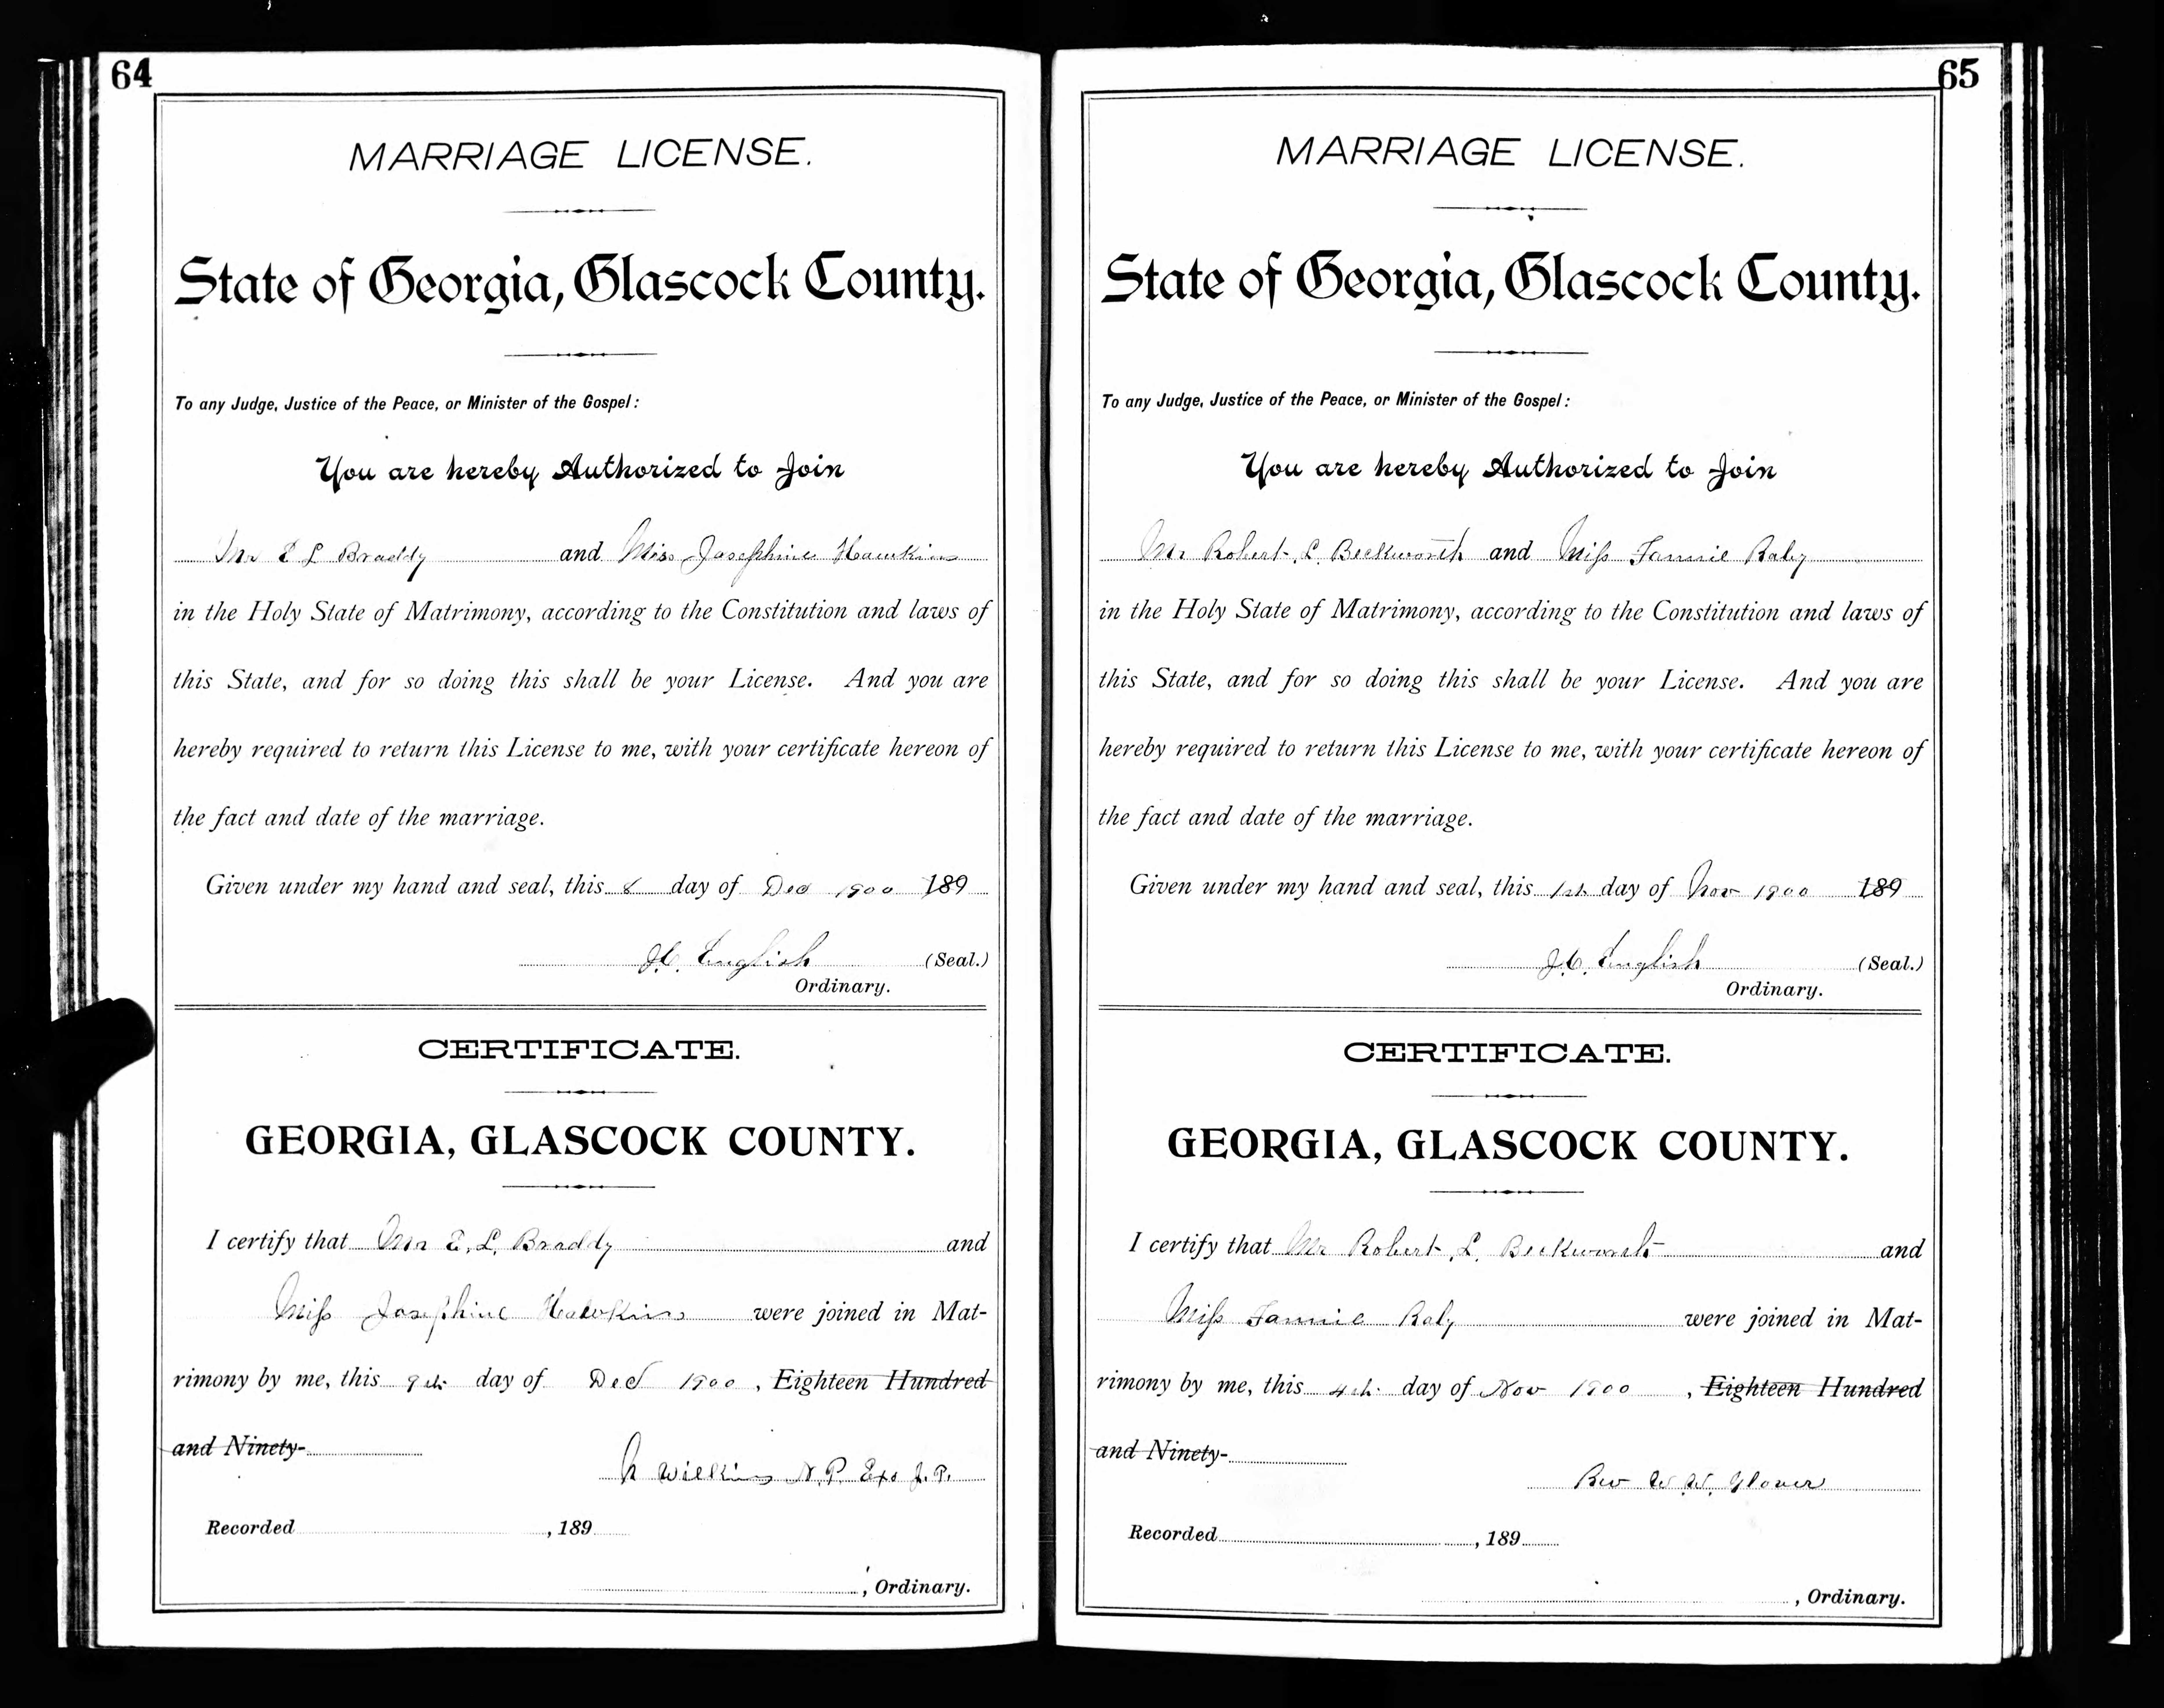 64
MARRIAGE LICENSE.
State of Georgia, Glascock County.
To any Judge, Justice of the Peace, or Minister of the Gospel:
You are hereby Authorized to Join
Mr E L Braddy and Miss Josephine Hawkins
in the Holy State of Matrimony, according to the Constitution and laws of
this State, and for so doing this shall be your License. And you are
hereby required to return this License to me, with your certificate hereon of
the fact and date of the marriage.
Given under my hand and seal, this 8 day of Dec 1900 189
J.C. English (Seal.)
Ordinary.
CERTIFICATE.
GEORGIA, GLASCOCK COUNTY.
I certify that Mr E. L. Braddy and
Miss Josephine Hawkins were joined in Mat-
rimony by me, this 9th day of Dec 1900, Eighteen Hundred
and Ninety-
Wilkins N.P. Exo J.P.
Recorded , 189
, Ordinary.
65
MARRIAGE LICENSE.
State of Georgia, Glascock County.
To any Judge, Justice of the Peace, or Minister of the Gospel:
You are hereby Authorized to Join
Mr Robert L. Beckworth and Miss Fannie Raby
in the Holy State of Matrimony, according to the Constitution and laws of
this State, and for so doing this shall be your License. And you are
hereby required to return this License to me, with your certificate hereon of
the fact and date of the marriage.
Given under my hand and seal, this 1st day of Nov 1900 189
J.C. English (Seal.)
Ordinary.
CERTIFICATE.
GEORGIA, GLASCOCK COUNTY.
I certify that Mr Robert L. Beckworth and
Miss Fannie Raby were joined in Mat-
rimony by me, this 4th day of Nov 1900, Eighteen Hundred
and Ninety-
Rev W. W. Glover
Recorded , 189
, Ordinary.